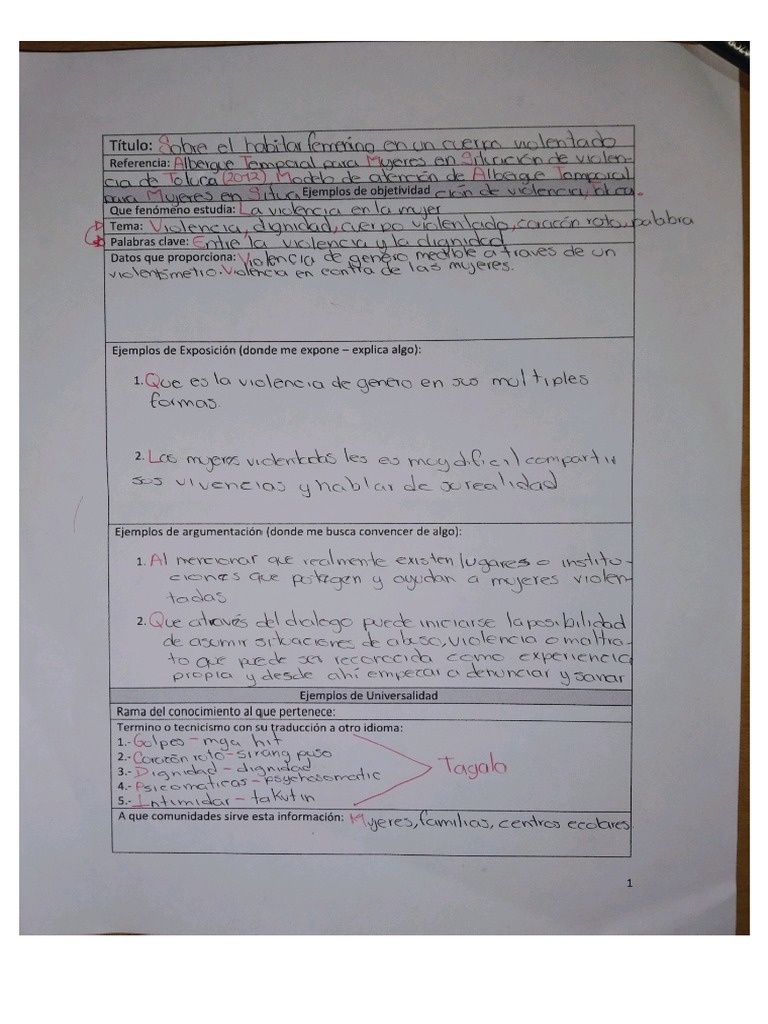 Título: Sobre el habitar femenino en un cuerpo violentado
Referencia: Albergue Temporal para Mujeres en Situación de violen-
cia de Toluca (2012) Modelo de atención de Albergue Temporal
para Mujeres en Situa Ejemplos de objetividad ción de violencia,
Que fenómeno estudia: La violencia en la mujer
Tema: Violencia, dignidad, cuerpo violentado, corazón roto, palabra
Palabras clave: Entre la violencia y la dignidad
Datos que proporciona: Violencia de genero medible a traves de un
violentímetro. Violencia en contra de las mujeres.
Ejemplos de Exposición (donde me expone – explica algo):
1. Que es la violencia de genero en sus multiples
formas.
2. Las mujeres violentadas les es muy dificil compartir
sus vivencias y hablar de su realidad
Ejemplos de argumentación (donde me busca convencer de algo):
1. Al mencionar que realmente existen lugares o institu-
ciones que protegen y ayudan a mujeres violen-
tadas
2. Que através del dialogo puede iniciarse la posibilidad
de asumir situaciones de abuso, violencia o maltra-
to que puede ser reconocida como experiencia
propia y desde ahí empezar a denunciar y sanar
Ejemplos de Universalidad
Rama del conocimiento al que pertenece:
Termino o tecnicismo con su traducción a otro idioma:
1.- Golpes – mga hit
2.- Corazón roto – sirang puso
3.- Dignidad – dignidad
4.- Psicomaticas – psychosomatic
5.- Intimidar – takutin
Tagalo
A que comunidades sirve esta información: Mujeres, familias, centros ecolares
1